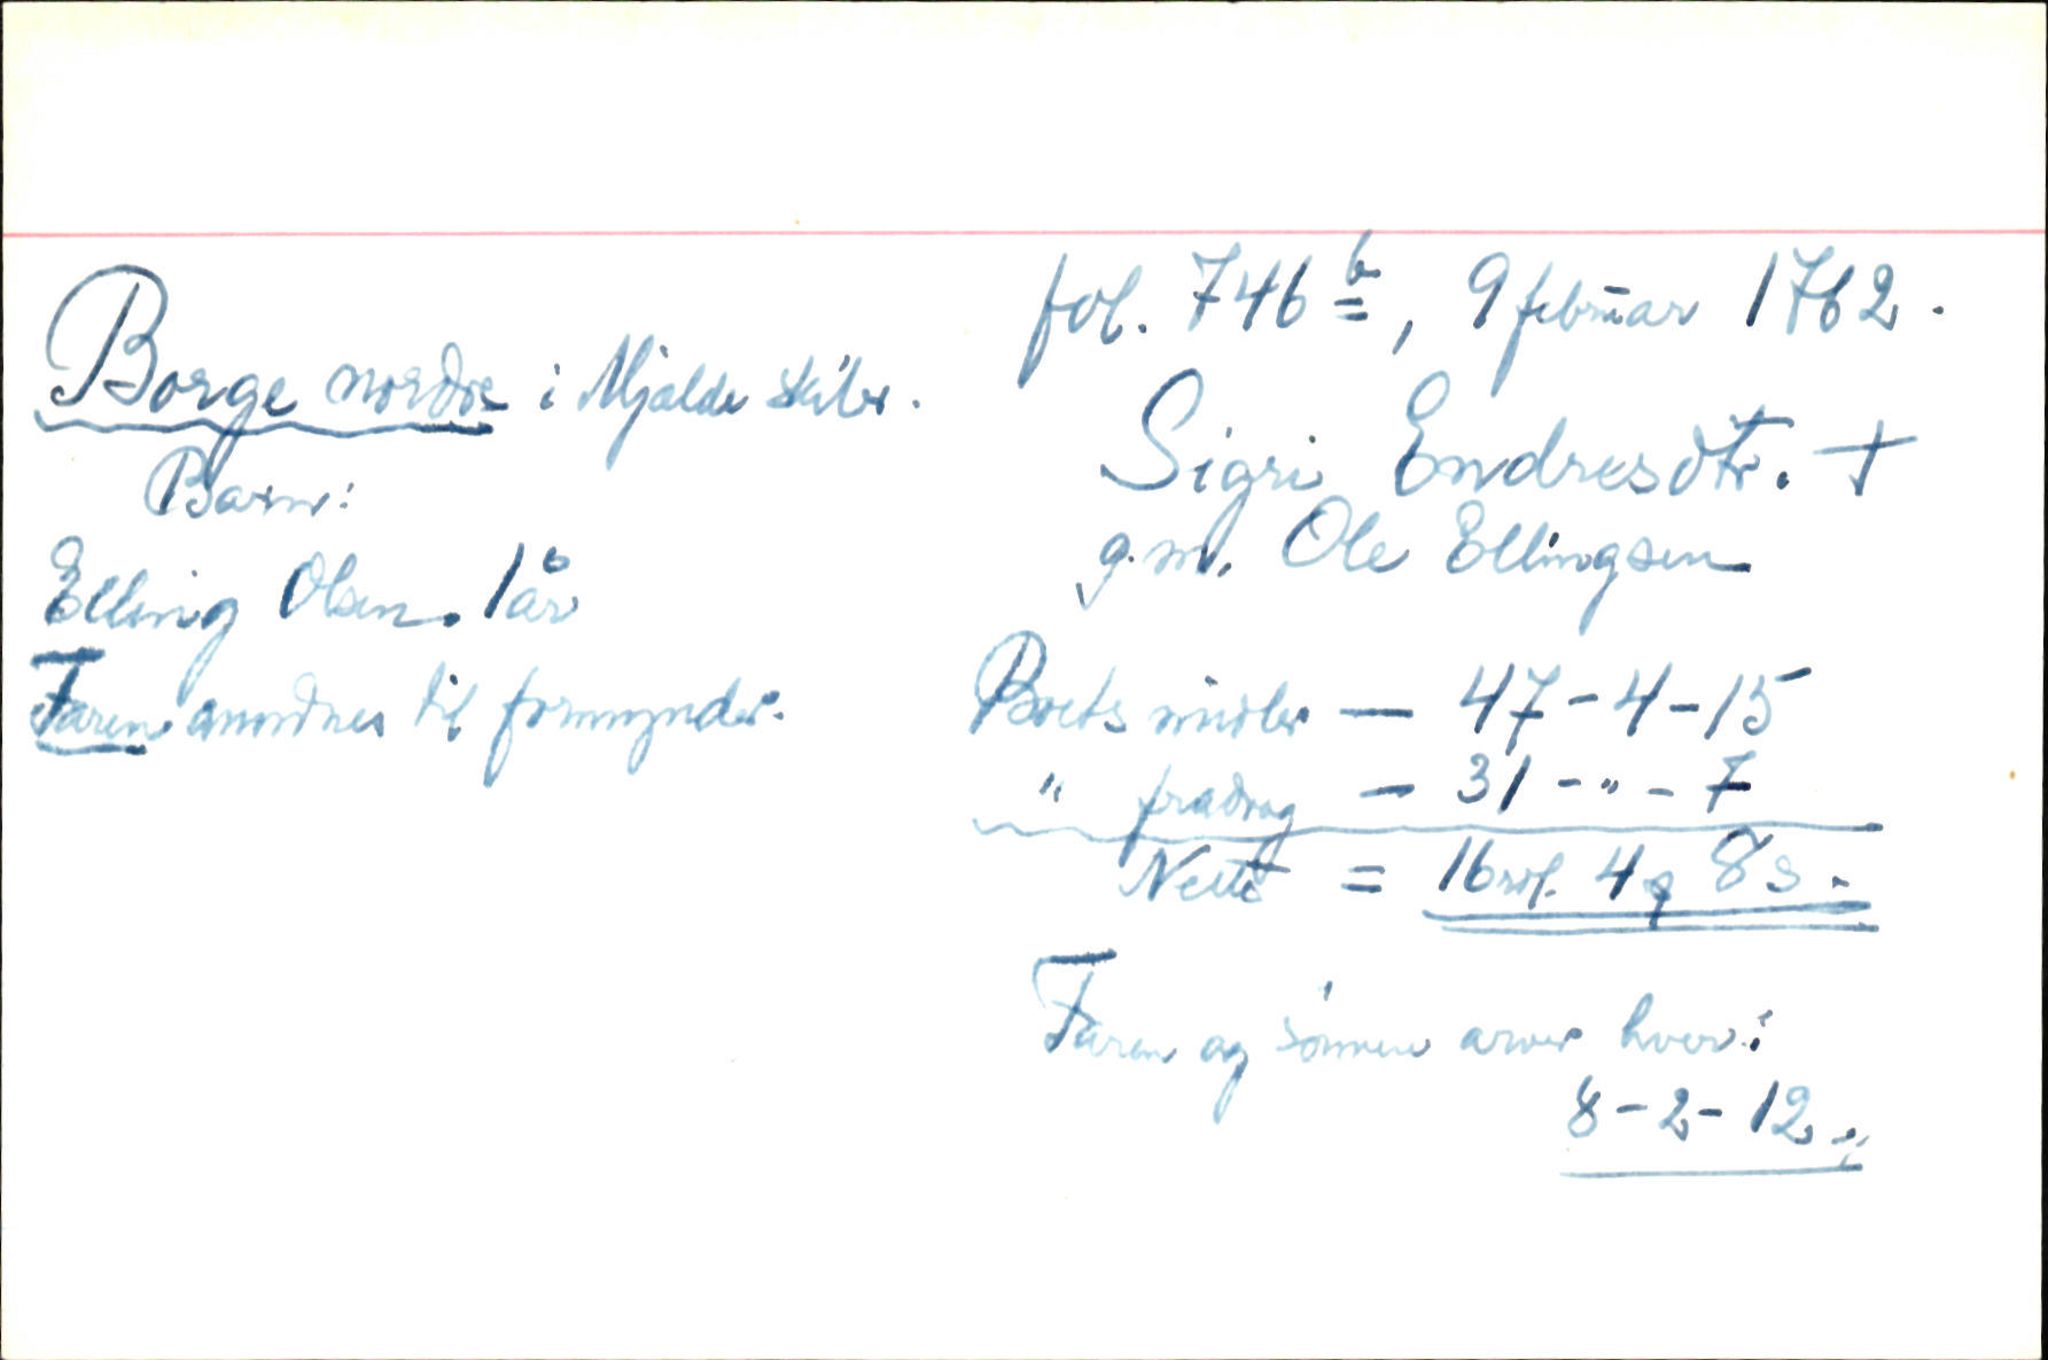 fol. 746 b, 9 februar 1762.
Borge nordre i Mjelde skibr.
Sigri Endresdtr. +
g.m. Ole Ellingsen
Barn:
Elling Olsen. 1 år
Faren anordnes til formynder.
Boets midler — 47-4-15
" fradrag — 31-"-7
Netto = 16 rdl. 4 q 8 s.
Faren og sønnen arver hver:
8-2-12 "